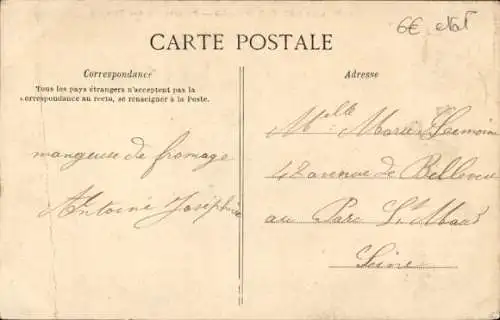 6€ etat
CARTE POSTALE
Correspondance
Tous les pays étrangers n'acceptent pas la
correspondance au recto, se renseigner à la Poste.
mangeuse de fromage
Antoine Joséphine
Adresse
Mlle Marie
48 avenue de Bellevue
au Parc St Maur
Seine